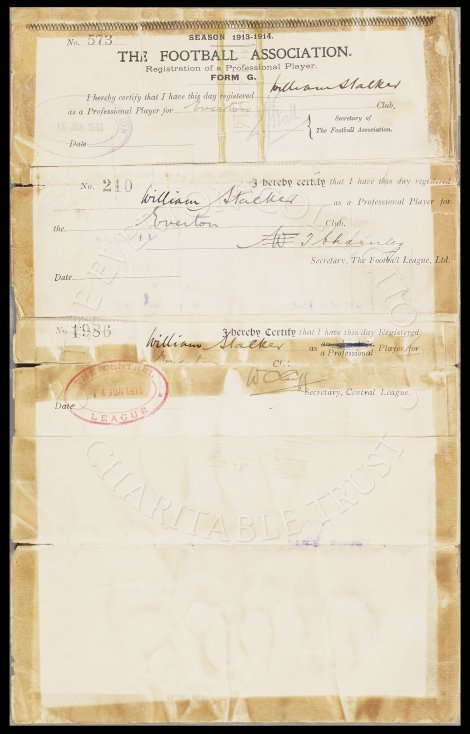 SEASON 1913-1914.
No. 573
THE FOOTBALL ASSOCIATION.
Registration of a Professional Player.
FORM G.
I hereby certify that I have this day registered William Stalker
as a Professional Player for Everton Club.
Secretary of
The Football Association.
16 JUN. 1913
Date
No. 210 I hereby certify that I have this day registered
William Stalker as a Professional Player for
the Everton Club.
Secretary, The Football League, Ltd.
Date
No. 1986 I hereby Certify that I have this day Registered
William Stalker as a Professional Player for
Secretary, Central League.
THE CENTRAL
14 JUN 1913
LEAGUE
Date
EVERTON COLLECTION
CHARITABLE TRUST